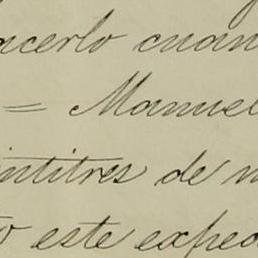 acerlo cuan
= Manuel
intitres de n
o este exped